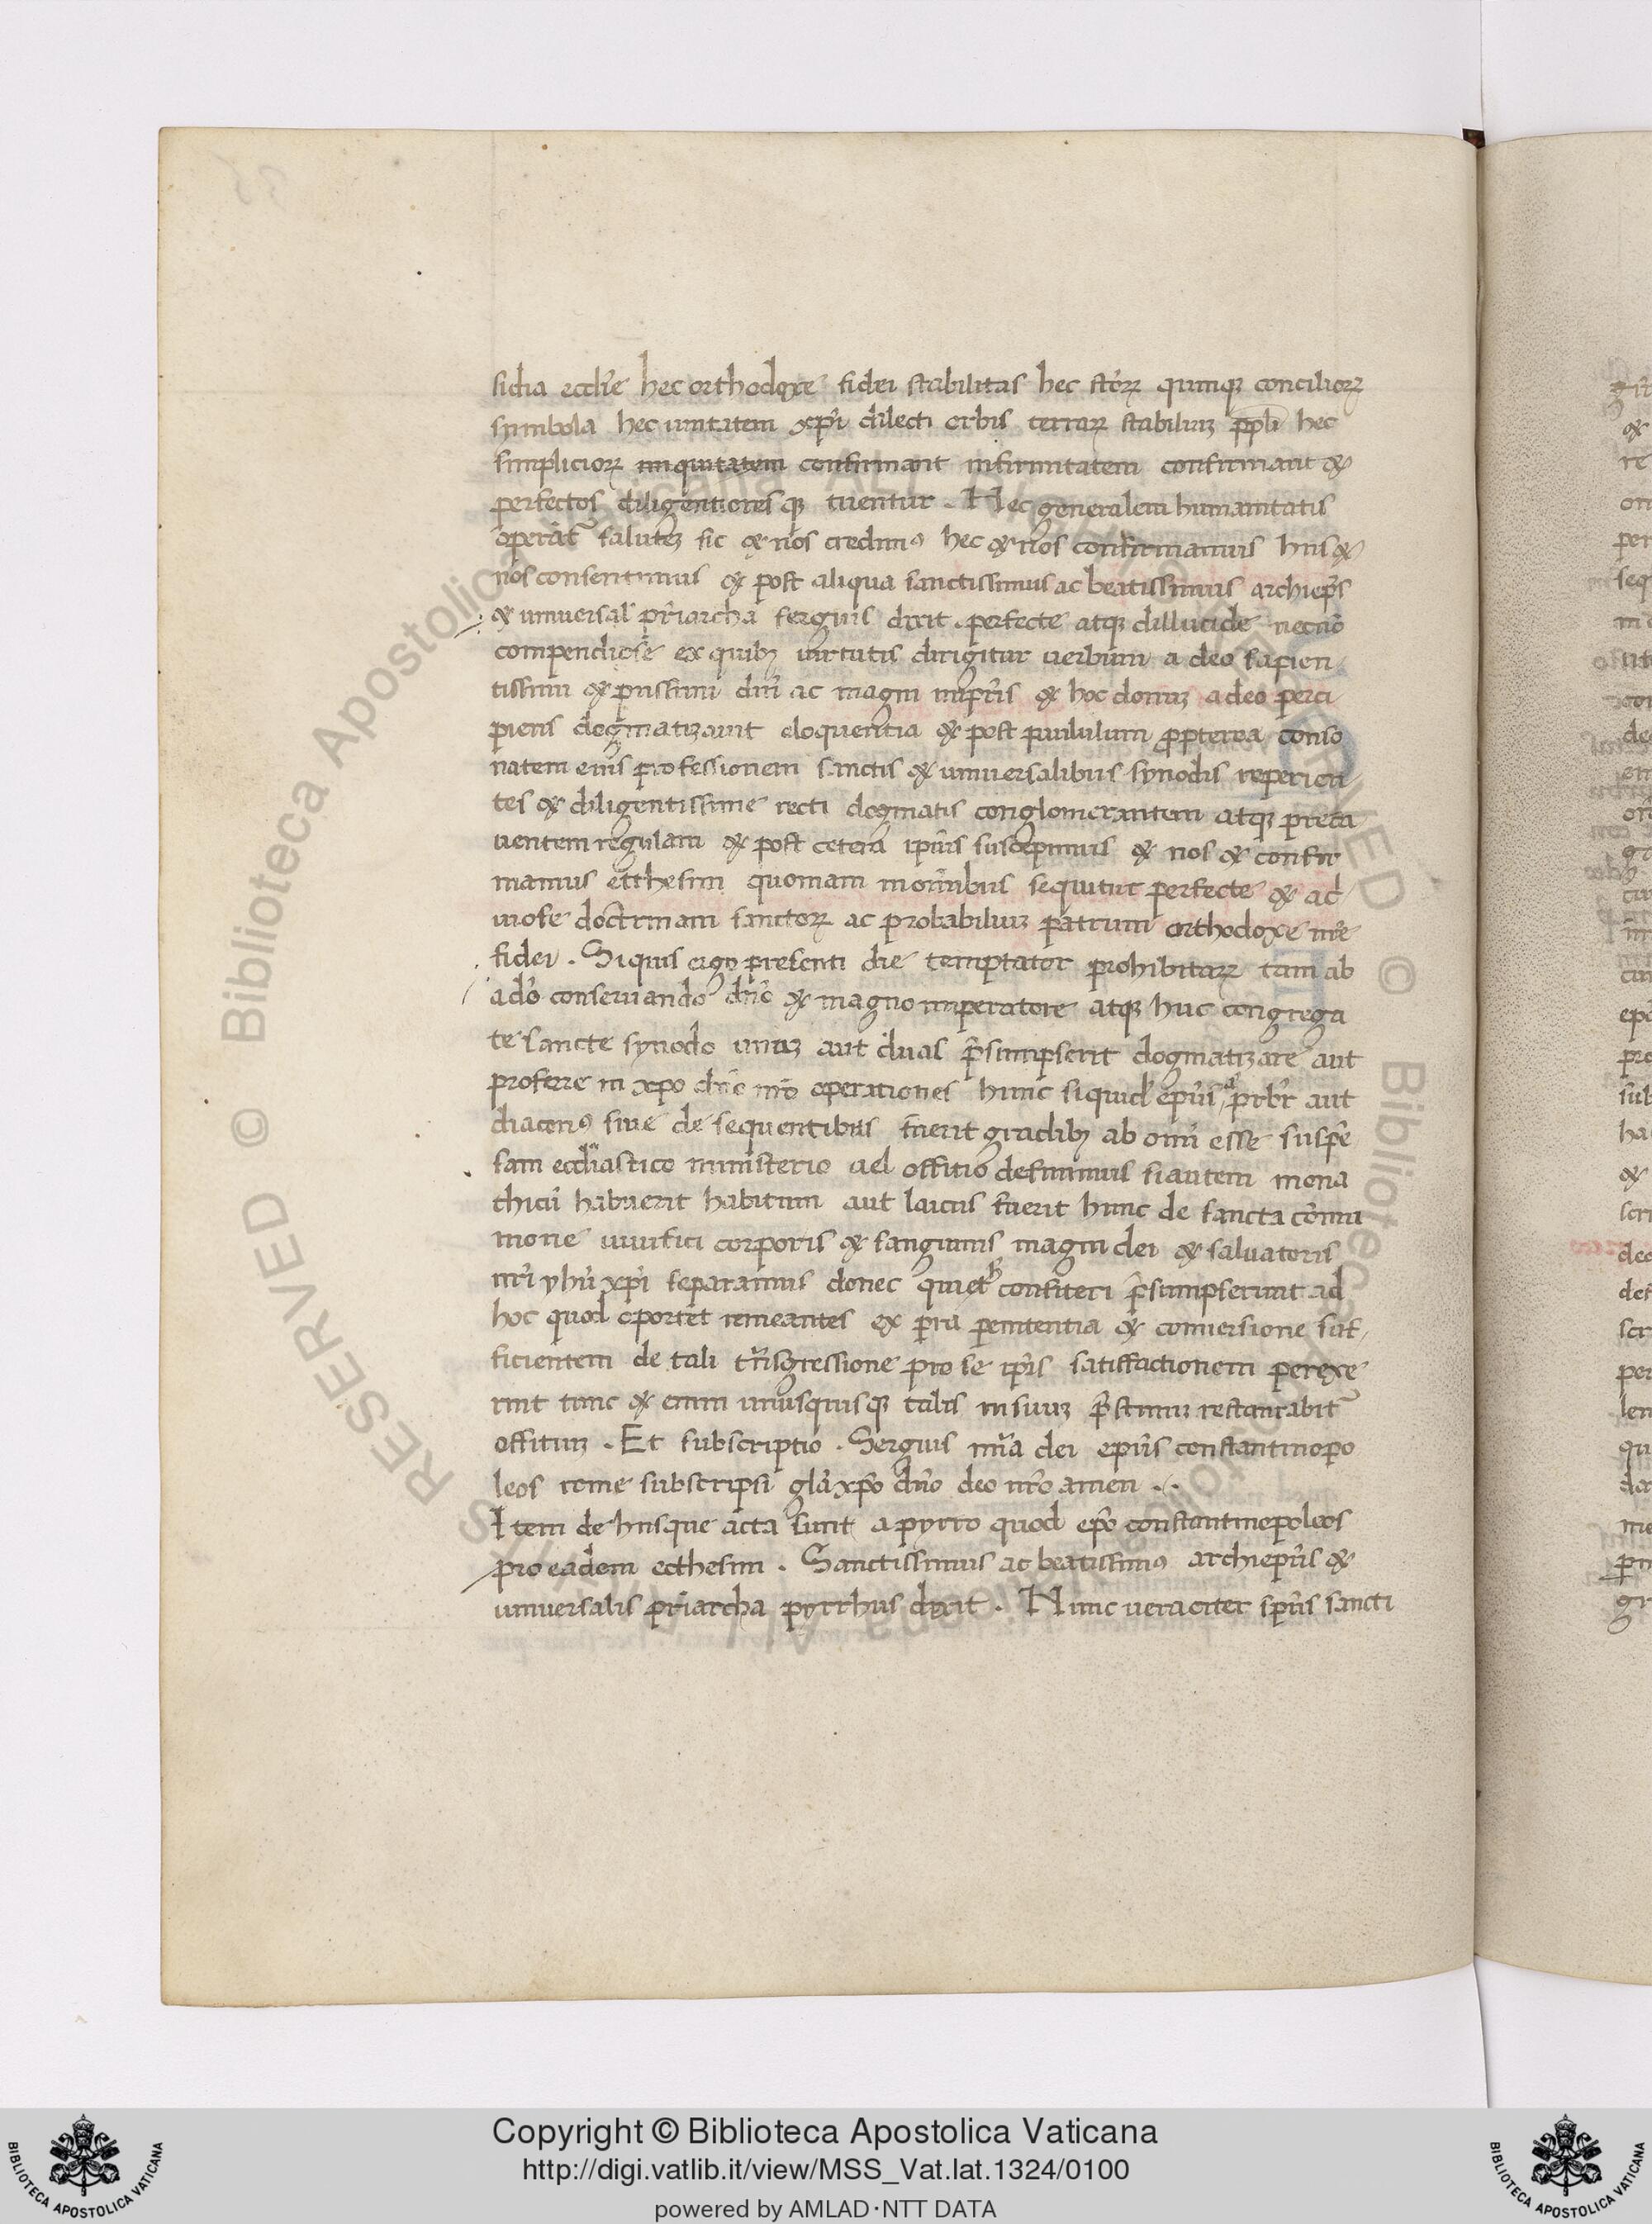 sidia eccl̄ie hec orthodoxe fidei stabilitas hec sc̄torꝝ quinqꝫ conciliorꝝ
simbola hec unitatem xp̄i dilecti orbis terrarꝝ stabiliuꝫ pp̄li hec
simpliciorꝝ iniquitatem confirmant infirmitatem confirmant &
perfectos diligentioresqꝫ tuentur. Hec generalem humanitatis
operāt̄ saluteꝫ sic & nos credimꝰ hec & nos confirmamus hiis &
nos consentimus & post aliqua sanctissimus ac beatissimus archiep̄s
& universal' pr̄iarcha sergius dixit. perfecte atqꝫ dillucide necnō
compendiose ex quibꝫ virtutis dirigitur verbum a deo sapien
tissimi & piissimi dn̄i ac magni imp̄ris & hoc donuꝫ a deo perci
piens dogmatizavit eloquentia & post paululum propterea conso
natem eius professionem sanctis & universalibus synodis reperien
tes & diligentissime recti dogmatis conglomerantem atqꝫ preca
ventem regulam & post cetera ip̄ius suscepimus & nos & confir
mamus ecthesim quoniam moribus sequitur perfecte & ac
viose doctrinam sanctorꝝ ac probabiliuꝫ patrum orthodoxe nr̄e
fidei. Siquis ergo presenti die temptator prohibitarꝝ tam ab
a dō conservando dn̄o & magno imperatore atqꝫ huc congrega
te sancte synodo unaꝫ aut duas p̄sumpserit dogmatizare aut
proferre in xp̄o dn̄o nr̄o operationes hunc siquid' ep̄us prb̄r aut
diaconꝰ sive de sequentibus fuerit gradibꝫ ab om̄i esse suspē
sam eccl̄iastico ministerio vel offitio definimus si autem mona
chicū habuerit habitum aut laicus fuerit hunc de sancta cōmu
nione vivifici corporis & sanguinis magni dei & salvatoris
nr̄i yhū xp̄i separamus donec confiteri p̄sumpserunt ad
hoc quod oportet remeantes ex p̄ria penitentia & conversione suf
ficientem de tali trn̄sgressione pro se ip̄is satisfactionem perexe
rint tunc & enim unusquisqꝫ talis in suuꝫ p̄stinuꝫ restaurabit̄
offitiuꝫ. Et subscriptio. Sergius mīa dei ep̄us constantinopo
leos rome subscripsi glā xp̄o dn̄o deo nr̄o amen..
Item de hiisque acta sunt a pyrro quod ep̄o constantinopoleos
pro eadem ecthesim. Sanctissimus ac beatissimꝰ archiep̄us &
universalis pr̄iarcha pyrrhus dixit. Nunc veraciter sp̄us sancti
Copyright © Biblioteca Apostolica Vaticana
http://digi.vatlib.it/view/MSS_Vat.lat.1324/0100
powered by AMLAD·NTT DATA